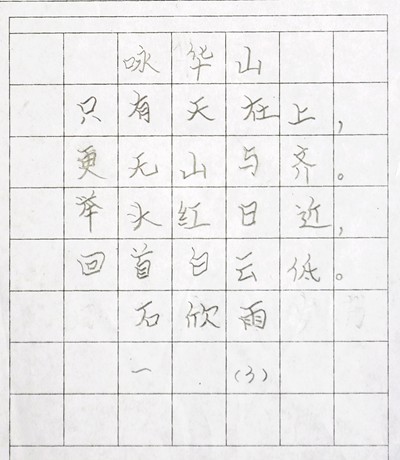 咏华山
只有天在上，
更无山与齐。
举头红日近，
回首白云低。
石欣雨
一 （3）